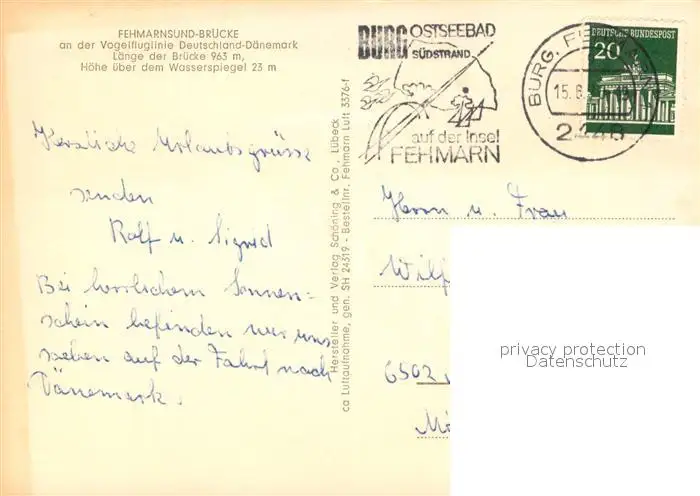 FEHMARNSUND-BRÜCKE
an der Vogelfluglinie Deutschland-Dänemark
Länge der Brücke 963 m,
Höhe über dem Wasserspiegel 23 m
Herzliche Urlaubsgrüsse
senden
Rolf u. Sigrid
Bei herrlichem Sonnen=
schein befinden wir uns
soeben auf der Fahrt nach
Dänemark.
Hersteller und Verlag Schöning & Co., Lübeck
ca Luftaufnahme, gen. SH 24319 - Bestellnr. Fehmarn Luft 3376-f
BURG OSTSEEBAD
SÜDSTRAND
auf der Insel
FEHMARN
BURG, FEHMARN
15.8.
2448
DEUTSCHE BUNDESPOST
20
Herrn u. Frau
Wilf
6502
privacy protection
Datenschutz